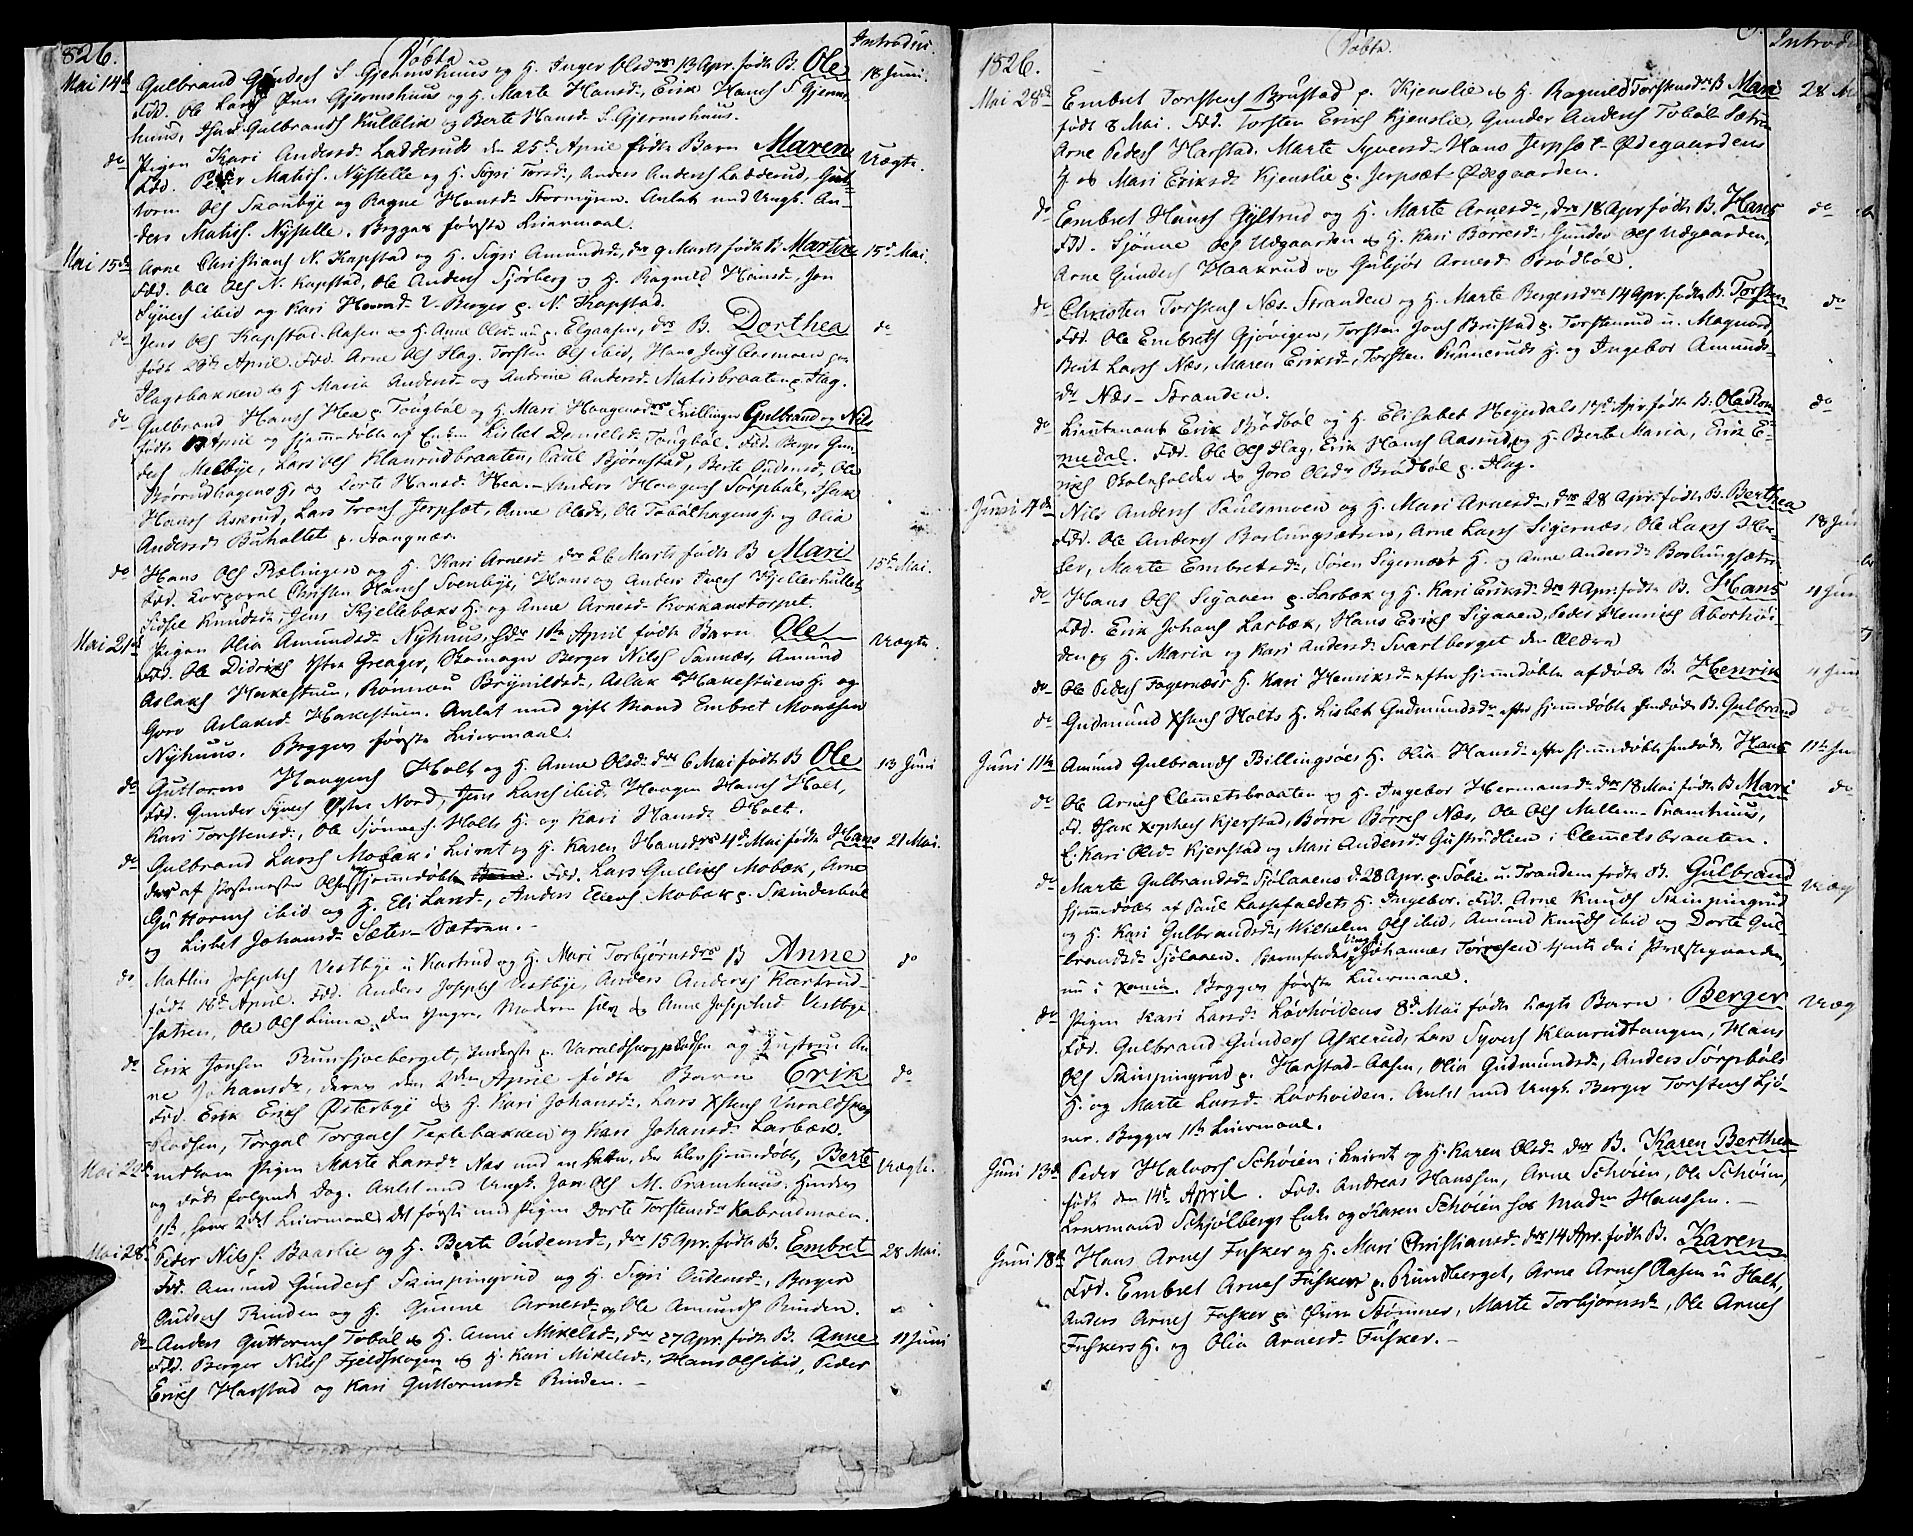 826. Döbte Introduc.
Mai 14de Gulbrand Gunders S. Gjermshuus og H. Inger Olsdr 13 Apr. fødte B. Ole 18 Juni.
Fdd. Ole Lars Øvre Gjermshuus og H. Marte Hansd., Erik Hans S Gjerms
huus, Isak Gulbrands Kulblik og Berte Hansd. S. Gjermshuus.
do Pigen Kari Andersd. Ladderuds den 25d April fødte Barn Maren Uægte.
Fdd. Peder Mathis. Nystelle og H. Sigri Torsd., Anders Anders Ladderud, Gut-
torm Ols Skonbye og Ragne Hansd. Stormyren. Anlat ud Ungk. An-
ders Mathis. Nystelle. Begges første Leiermaal.
Mai 15de Arne Christians N. Kapstad og H. Sigri Amundsd., drs 9 Marts fødte B. Martin 15d Mai.
Fdd. Ole Ols N. Kapstad, Ole Anders Sjøberg og H. Ragneld Hansd., Jon
Syvers ibid og Kari V. Berger p. N. Kapstad.
do Jens Ols Kapstad-Aasen og H. Anne Olsd. p. Elgaasen, drs B. Dorthea do
født 23d April. Fdd. Arne Ols Flag. Torsten Ols ibid, Hans Jens Aasmoen
Flagsbakken & H. Maria Andersd. og Andrine Andersd. Matisbraaten p. Flag.
do Gulbrand Hans Hea p. Tougbøl og H. Mari Haagensdrs Tvillinger Gulbrand og Nils
fødte April og hjemmedøbte af Enken Lisbet Danielsd. Tougbøl. Fdd. Berger Gun-
ders Melbye, Lars Ols Klanrudbraaten, Paul Bjørnstad, Berte Oudensd., Ole
Børrudhagens H. og Dorte Hansd. Hea. - Anders Haagens Sørpbøl, Isak
Hans Askerud, Lars Trons Jerpset, Anne Olsd., Ole Tobølhagens H. og Olia
Andersd. Buholtet p. Haagnæs.
do Hans Ols Rælingen og H. Kari Arnesd. drs 26 Marts fødte B Mari 15d Mai.
Fdd. Korporal Christen Hans Svenbye, Hans og Anders Ivers Kjellerhullet
Sidsel Knudsd., Jens Kjellebæks H. og Anne Arnesd. Kokkanstorpet.
Mai 21de Pigen Olia Amundsd. Nyhuus, Hdrs 1ste April fødte Barn Ole Uægte
Fdd. Ole Didriks Østre Greager, Skomager Berger Nils Sannes, Amund
Aslaks Hakestuen, Rønnou Brynildsd., Aslak Hakestuens H. og
Goro Aslaksd. Hakestuen. Anlat ud gift Mand Embret Monssen
Nyhuus. Begges første Leiermaal.
do Guttorm Haagens Holt og H. Anne Olsd. drs 6 Mai fødte B Ole 13 Juni
Fdd. Gunder Syvers Øster Nord, Jens Lars ibid. Haagen Hans Holt,
Kari Torstensd., Ole Sjønnes. Holts H. og Kari Hansd. Holt.
do Gulbrand Lars Mobæk i Leiret og H. Karen Hansdrs 4d Mai fødte Hans 21 Mai.
døbt af Postmester hjemmedøbte. Fdd. Lars Gulliks Mobæk, Arne
Guttorms ibid og H. Eli Larsd., Anders Mobæk p. Skinderbøl
og Lisbet Johansd. Sæter-Sætren.
do Mathis Josephs Vestbye u Kartrud og H. Mari Torbjørnsdrs B Anne do
født 18d April. Fdd. Anders Josephs Vestbye, Anders Anders Kartrud-
sætren, Ole Ols Linna den Yngre, Moderen selv & Anne Josephsd. Vestbye
do Erik Jonsen Rundsjoeberget, Inderste p. Varaldskogpladsen og Hustru An
ne Johansdr, deres den 2den April fødte Barn Erik do
Fdd. Erik Eriks Østerbye & H. Kari Johansd., Lars Xstens Varaldskog
Pladsen, Torgal Torgals Teglebakken og Kari Johansd. Larbæk
Mai 22de Pigen Marte Larsdr Næs ud en Datter, der blev hjemmedøbt, Berte Uægte.
og døde følgende Dag. Anlat ud Ungk. Jon Ols M. Pramhuus. Hendes
1ste, hans 2det Leiermaal. Det første med Pigen Dorte Torstensdr Kabrudmoen.
Mai 28d Peder Nils. Baaslie og H. Berte Oudensd., drs 15 Apr. fødte B. Embret 28 Mai.
Fdd. Amund Gunders Skinpingrud og H. Sigri Oudensd., Berger
Ouders Rinden og H. Gunne Arnesd. og Ole Amunds Rinden.
do Anders Guttorms Tobøl & H. Anne Mikelsd., drs 27 Apr. fødte B. Anne 11 Juni
Fdd. Berger Nils Fjeldskogen & H. Kari Mikelsd., Hans Ols ibid, Peder
Eriks Harstad og Kari Guttormsd. Rinden.
1826. Döbte. Introdu
Mai 28de Embret Torstens Brustad p. Kjenslie & H. Ragnild Torstensdrs B Mari 28 M
født 8 Mai. Fdd. Torsten Eriks Kjenslie, Gunder Anders Tobøl Sætren
Arne Peders Harstad. Marte Syversd. Hans Jerpset-Ødegaardens
H og Mari Eriksd. Kjenslie p. Jerpset-Ødegaarden.
do Embret Hans Gystrud og H. Marte Arnesdr, drs 18 Apr fødte B. Hans do
Fdd. Sjønne Ols Udgaarden & H. Kari Børresd., Gunder Ols Udgaarden,
Arne Gunders Haakrud og Gubjør Arnesd. Brødbøl.
do Christen Torstens Næs-Stranden og H. Marte Bergersdrs 14 Apr. fødte B. Torsten do
Fdd. Ole Embrets Gjøvigen, Torsten Jons Brustad p. Torstenrud u. Magnord,
Berit Lars Næs, Maren Eriksd., Torsten Rismeruds H. og Ingebor Amunds-
dr Næs-Stranden.
do Lieutenant Erik Brødbøl og H. Elisabet Heyerdals 17d Apr fødte B. Ole Rom do
medal. Fdd. Ole Ols Flag, Erik Hans Aasrud og H. Berte Maria, Erik E-
riks Skoleholder & Goro Olsdr Brødbøl p. Flag.
Juni 4de Nils Anders Paulsmoen og H. Mari Arnesd., drs 28 Apr. fødte B. Berthea 18 Jun
Fdd. Ole Anders Boslungsætren, Arne Lars Sigernæs, Ole Lars Ho-
ler, Marte Embretsd., Søren Sigernæs H. og Anne Andersd. Boslungsætr.
do Hans Ols Sigaaen p. Larbæk og H. Kari Eriksd. drs 4 Apr. fødte B. Hans 4 Jun
Fdd. Erik Johans Larbæk, Hans Eriks Sigaaen, Peder Henriks Aborhøi-
den og H. Maria og Kari Andersd. Svartberget den Ældre
do Ole Peders Fagernæs's H. Kari Henriksd. efter hjemmedøbte afdøde B. Henrik 4 Jun
do Gudmund Xstens Holts H. Lisbet Gudmundsdr efter hjemmedøbte døde B. Gulbrand do
Juni 11te Amund Gulbrands Billingsøes H. Olia Hansd. efter hjemmedøbte Hans 11te Ju
do Ole Arnes Clemetsbraaten og H. Ingebor Hermansd. drs 18 Mai fødte B Mari do
Fd. Isak Xophers Kjerstad, Børre Børres Næs, Ole Ols Mellem-Pramhuus,
E. Kari Olsd. Kjerstad og Mari Andersdr Gustrudlien i Clemetsbraaten.
do Marte Gulbrandsd. Sjølaaens d. 28 Apr. p. Sølie u. Trondem fødte B. Gulbrand Uæg
hjemmedøbt af Paul Kassefaldets H. Ingebor. Fdd. Arne Knuds Skinpingrud
og H. Kari Gulbrandsd., Wilhelm Ols ibid, Amund Knuds ibid og Dorte Gul-
brandsd. Sjølaaen. Barnefader Ungk Johannes Torresen tjente da i Præstegaarden,
nu i Xania. Begges første Leiermaal.
do Pigen Kari Larsd. Løvhøidens 8d Mai fødte uægte Barn Berger Uæg
Fdd. Gulbrand Gunders Askerud, Lars Syvers Klanrudtangen, Hans
Ols Skinpingrud p. Harstad-Aasen, Olia Gudmundsd., Anders Sørpbøls
H. og Marte Larsd. Løvhøiden. Anlat ud Ungk. Berger Torstens Sjø-
mo. Begges 1ste Leiermaal.
Juni 13de Peder Halvors Schøien i Leiret og H. Karen Olsd. drs B. Karen Berthea
født den 14d April. Fdd. Andreas Hanssen, Arne Schøien, Ole Schøien,
Lensmand Schjølbergs Enke og Karen Schøien hos Madm Hanssen.
Juni 18de Hans Arnes Fusker og H. Mari Christiansd. drs 14 Apr. fødte B. Karen
Fdd. Embret Arnes Fusker p. Rundberget, Arne Arnes Aasen u Holt,
Anders Arnes Fusker p. Øvre Stømner, Marte Torbjørnsd., Ole Arnes
Fuskers H. og Olia Arnesd. Fusker.